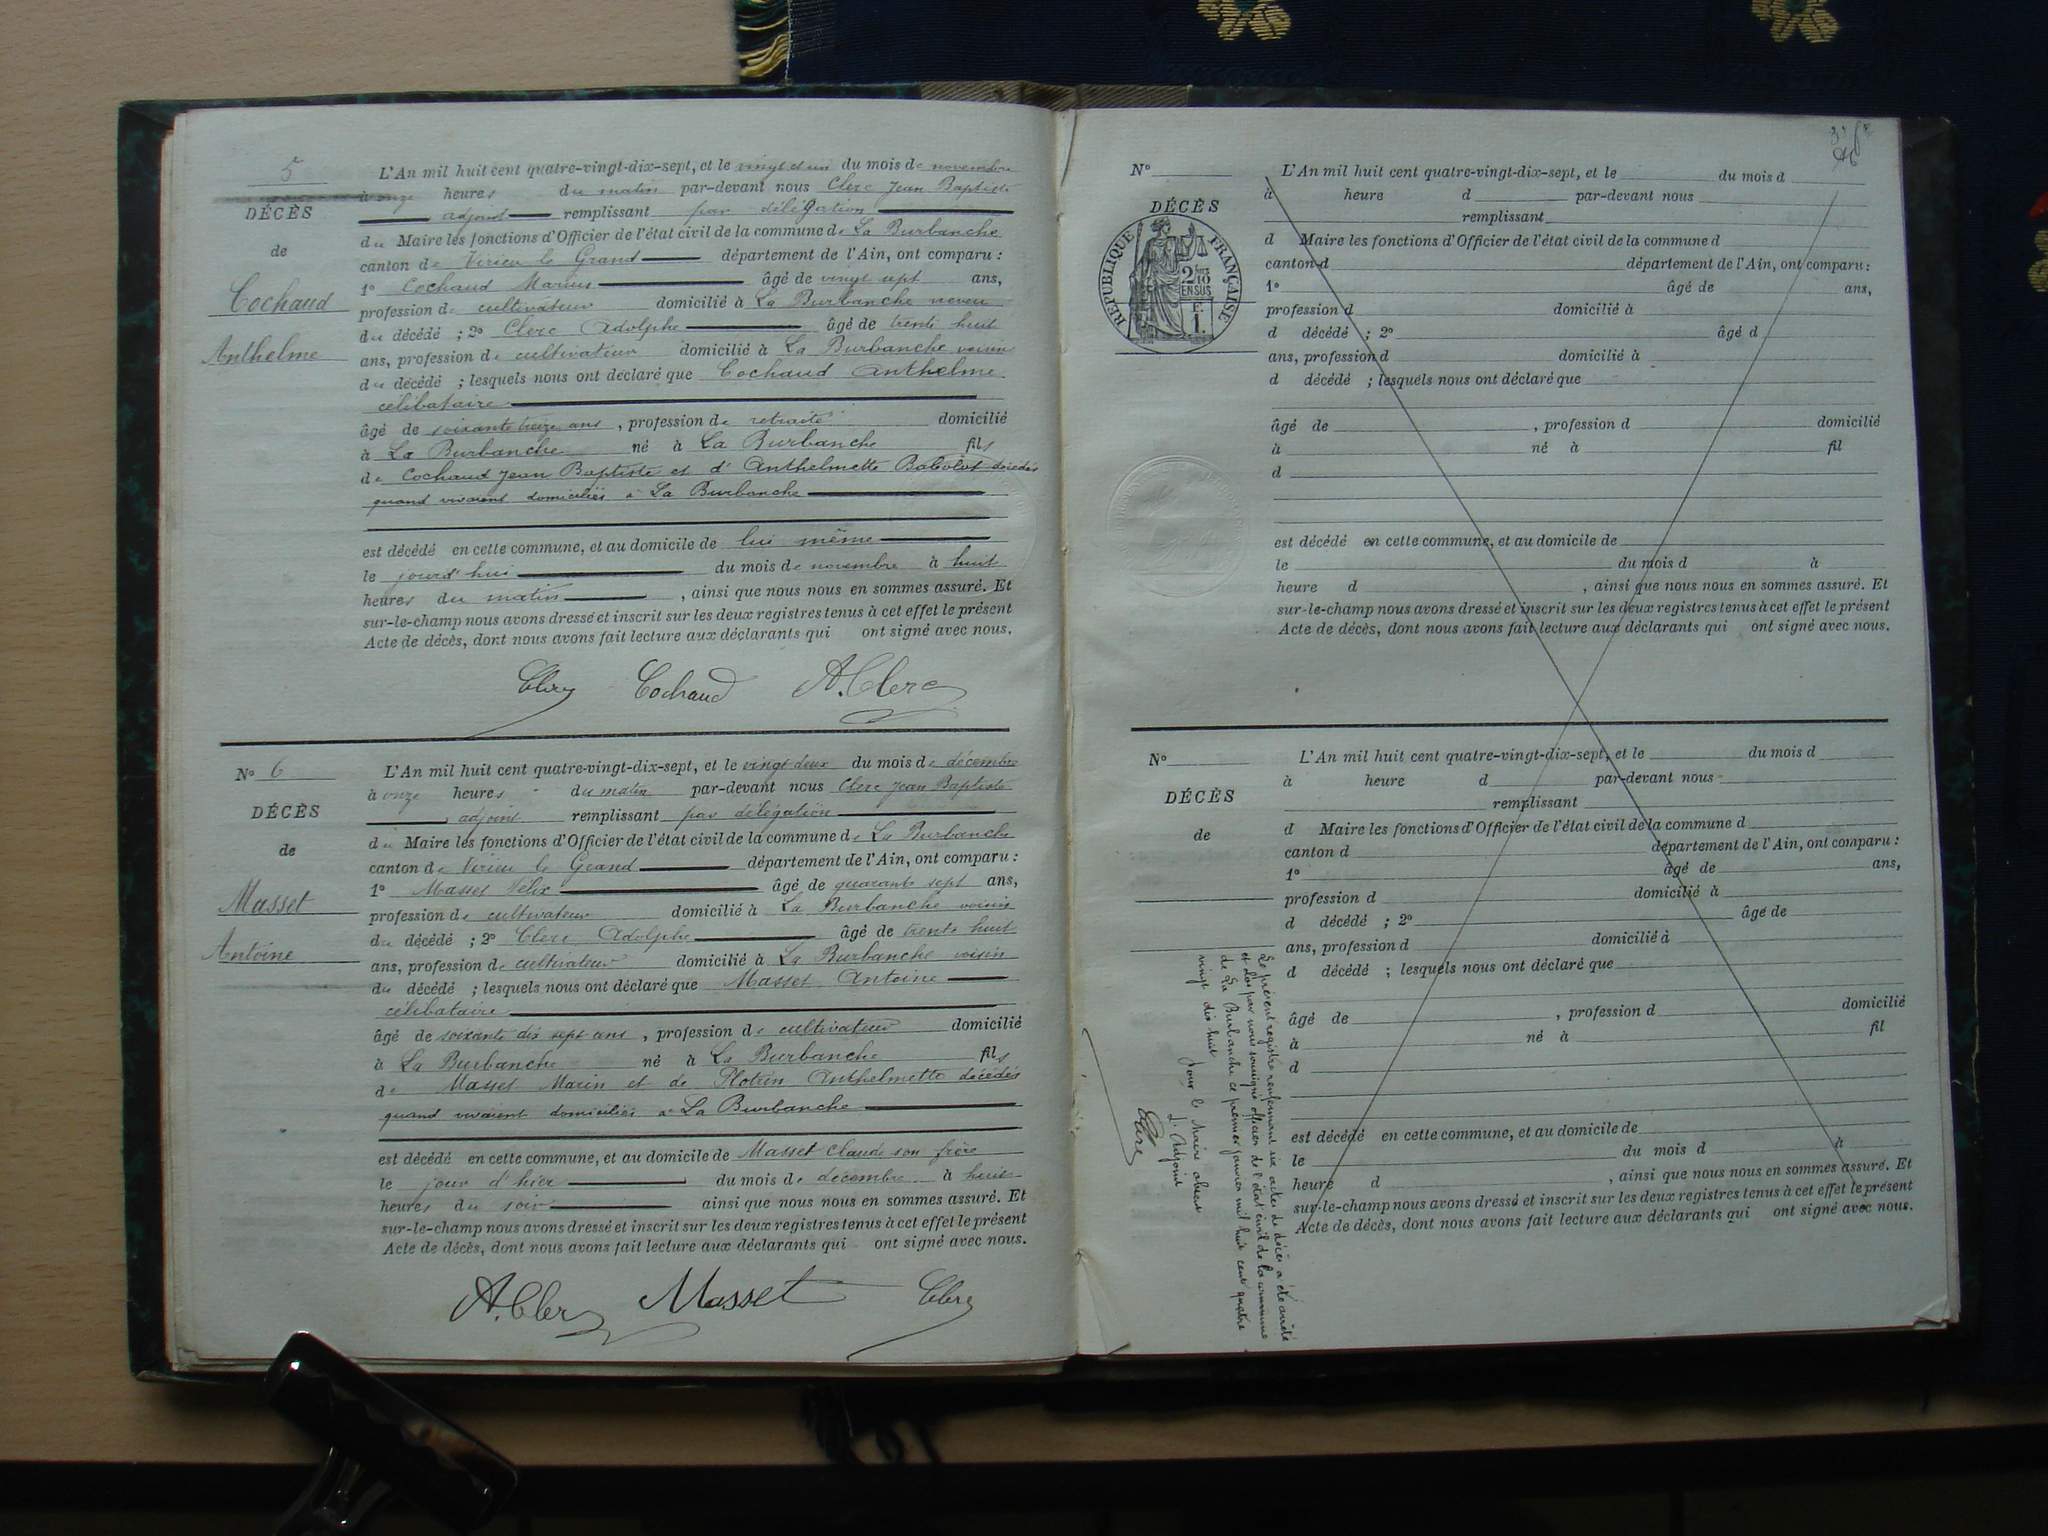 5
L'An mil huit cent quatre-vingt-dix-sept, et le vingt et un du mois de novembre
à onze heures du matin par-devant nous Clerc Jean Baptiste
adjoint remplissant par délégation
DÉCÈS
du Maire les fonctions d'Officier de l'état civil de la commune de La Burbanche
de
canton de Virieu le Grand département de l'Ain, ont comparu :
1° Cochaud Marius âgé de vingt sept ans,
Cochaud
profession de cultivateur domicilié à La Burbanche neveu
du décédé ; 2° Clerc Adolphe âgé de trente huit
Anthelme
ans, profession de cultivateur domicilié à La Burbanche voisin
du décédé ; lesquels nous ont déclaré que Cochaud Anthelme
célibataire
âgé de soixante treize ans, profession de retraité domicilié
à La Burbanche né à La Burbanche fils
de Cochaud Jean Baptiste et d'Anthelmette décédés
quand vivaient domiciliés à La Burbanche
est décédé en cette commune, et au domicile de lui même
le jourd'hui du mois de novembre à huit
heures du matin, ainsi que nous nous en sommes assuré. Et
sur-le-champ nous avons dressé et inscrit sur les deux registres tenus à cet effet le présent
Acte de décès, dont nous avons fait lecture aux déclarants qui ont signé avec nous.
Clerc Cochaud A. Clerc
N° 6
L'An mil huit cent quatre-vingt-dix-sept, et le vingt-deux du mois de décembre
à onze heures du matin par-devant nous Clerc Jean Baptiste
adjoint remplissant par délégation
DÉCÈS
du Maire les fonctions d'Officier de l'état civil de la commune de La Burbanche
de
canton de Virieu le Grand département de l'Ain, ont comparu :
1° Masset Félix âgé de quarante sept ans,
Masset
profession de cultivateur domicilié à La Burbanche voisin
du décédé ; 2° Clerc Adolphe âgé de trente huit
Antoine
ans, profession de cultivateur domicilié à La Burbanche voisin
du décédé ; lesquels nous ont déclaré que Masset Antoine
célibataire
âgé de soixante dix sept ans, profession de cultivateur domicilié
à La Burbanche né à La Burbanche fils
de Masset Marin et de Anthelmette décédés
quand vivaient domiciliés à La Burbanche
est décédé en cette commune, et au domicile de Masset Claude son frère
le jour d'hier du mois de décembre à huit
heures du soir ainsi que nous nous en sommes assuré. Et
sur-le-champ nous avons dressé et inscrit sur les deux registres tenus à cet effet le présent
Acte de décès, dont nous avons fait lecture aux déclarants qui ont signé avec nous.
A. Clerc Masset Clerc
N°
L'An mil huit cent quatre-vingt-dix-sept, et le du mois d
à heure d par-devant nous
DÉCÈS
remplissant
d Maire les fonctions d'Officier de l'état civil de la commune d
canton d département de l'Ain, ont comparu :
RÉPUBLIQUE FRANÇAISE
2/10 EN SUS
F.
1.
1° âgé de ans,
profession d domicilié à
d décédé ; 2° âgé d
ans, profession d domicilié à
d décédé ; lesquels nous ont déclaré que
âgé de , profession d domicilié
à né à fil
d
est décédé en cette commune, et au domicile de
le du mois d à
heure d , ainsi que nous nous en sommes assuré. Et
sur-le-champ nous avons dressé et inscrit sur les deux registres tenus à cet effet le présent
Acte de décès, dont nous avons fait lecture aux déclarants qui ont signé avec nous.
N°
L'An mil huit cent quatre-vingt-dix-sept, et le du mois d
à heure d par-devant nous
DÉCÈS
remplissant
de
d Maire les fonctions d'Officier de l'état civil de la commune d
canton d département de l'Ain, ont comparu :
1° âgé de ans,
profession d domicilié à
d décédé ; 2° âgé de
ans, profession d domicilié à
d décédé ; lesquels nous ont déclaré que
âgé de , profession d domicilié
à né à fil
d
est décédé en cette commune, et au domicile de
le du mois d à
heure d , ainsi que nous nous en sommes assuré. Et
sur-le-champ nous avons dressé et inscrit sur les deux registres tenus à cet effet le présent
Acte de décès, dont nous avons fait lecture aux déclarants qui ont signé avec nous.
Le présent registre renfermant six actes de décès a été arrêté
et clos par nous soussigné officier de l'état civil de la commune
de La Burbanche ce premier janvier mil huit cent quatre
vingt dix huit
Pour le Maire absent
L'Adjoint
Clerc